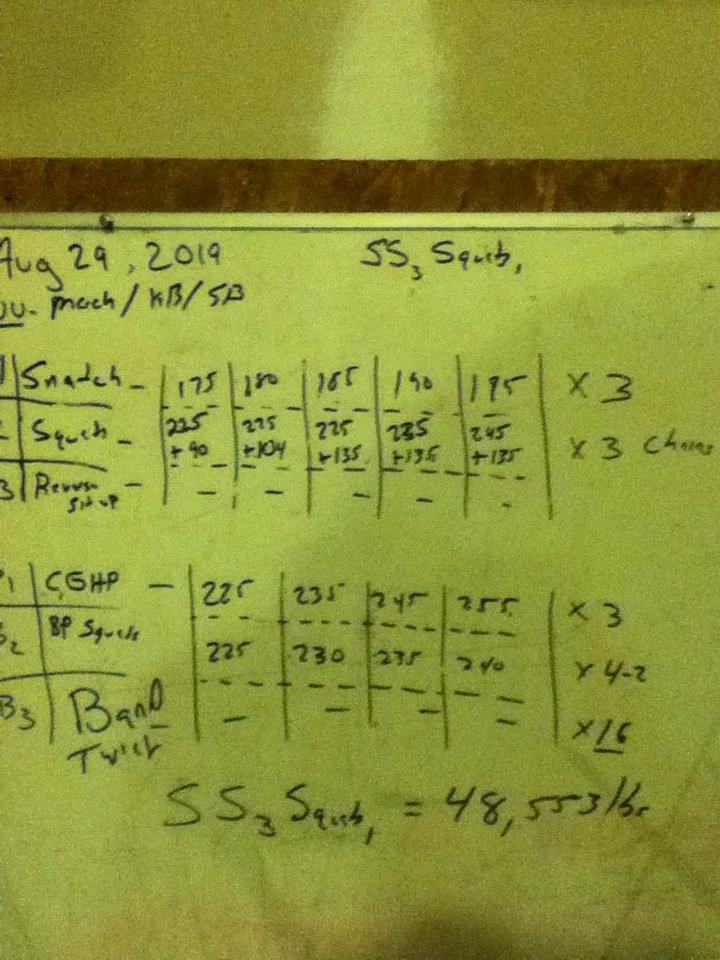 Aug 29, 2019 SS3 Squib,
DU- Mach / KB / SB
Snatch - 175 180 185 190 195 x 3
Squib - 225 225 225 235 245
+90 +104 +135 +135 +135 x 3 Chains
3 Reverse - - - - - -
Sit up
1 CGHP - 225 235 245 255 x 3
2 BP Squib 225 230 235 240 x 4-2
B3 Band - - - - -
Twist x 16
SS3 Squib, = 48,553 lbs